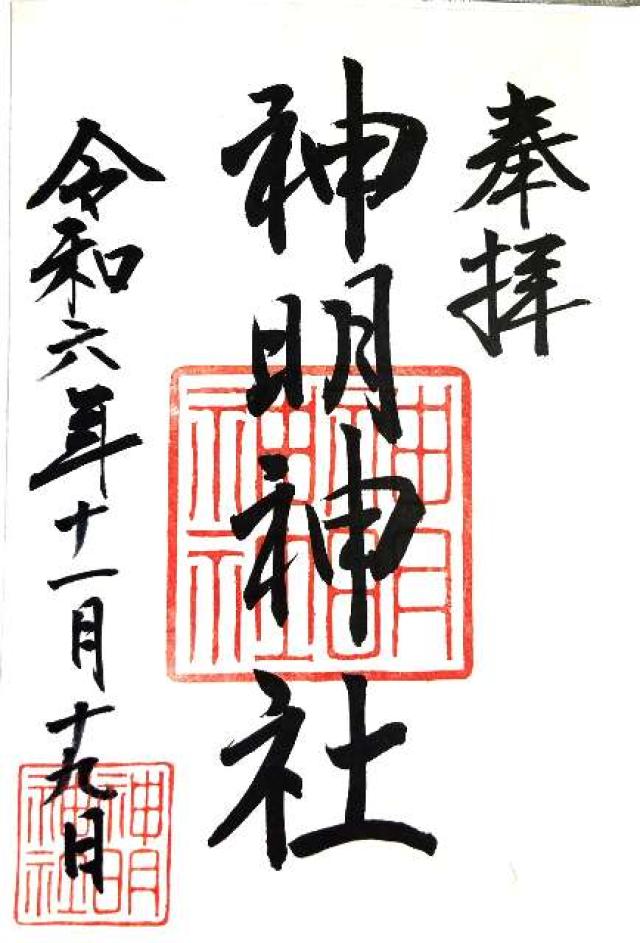 奉拝
神明神社
令和六年十一月十九日
神明
神社
神明
神社